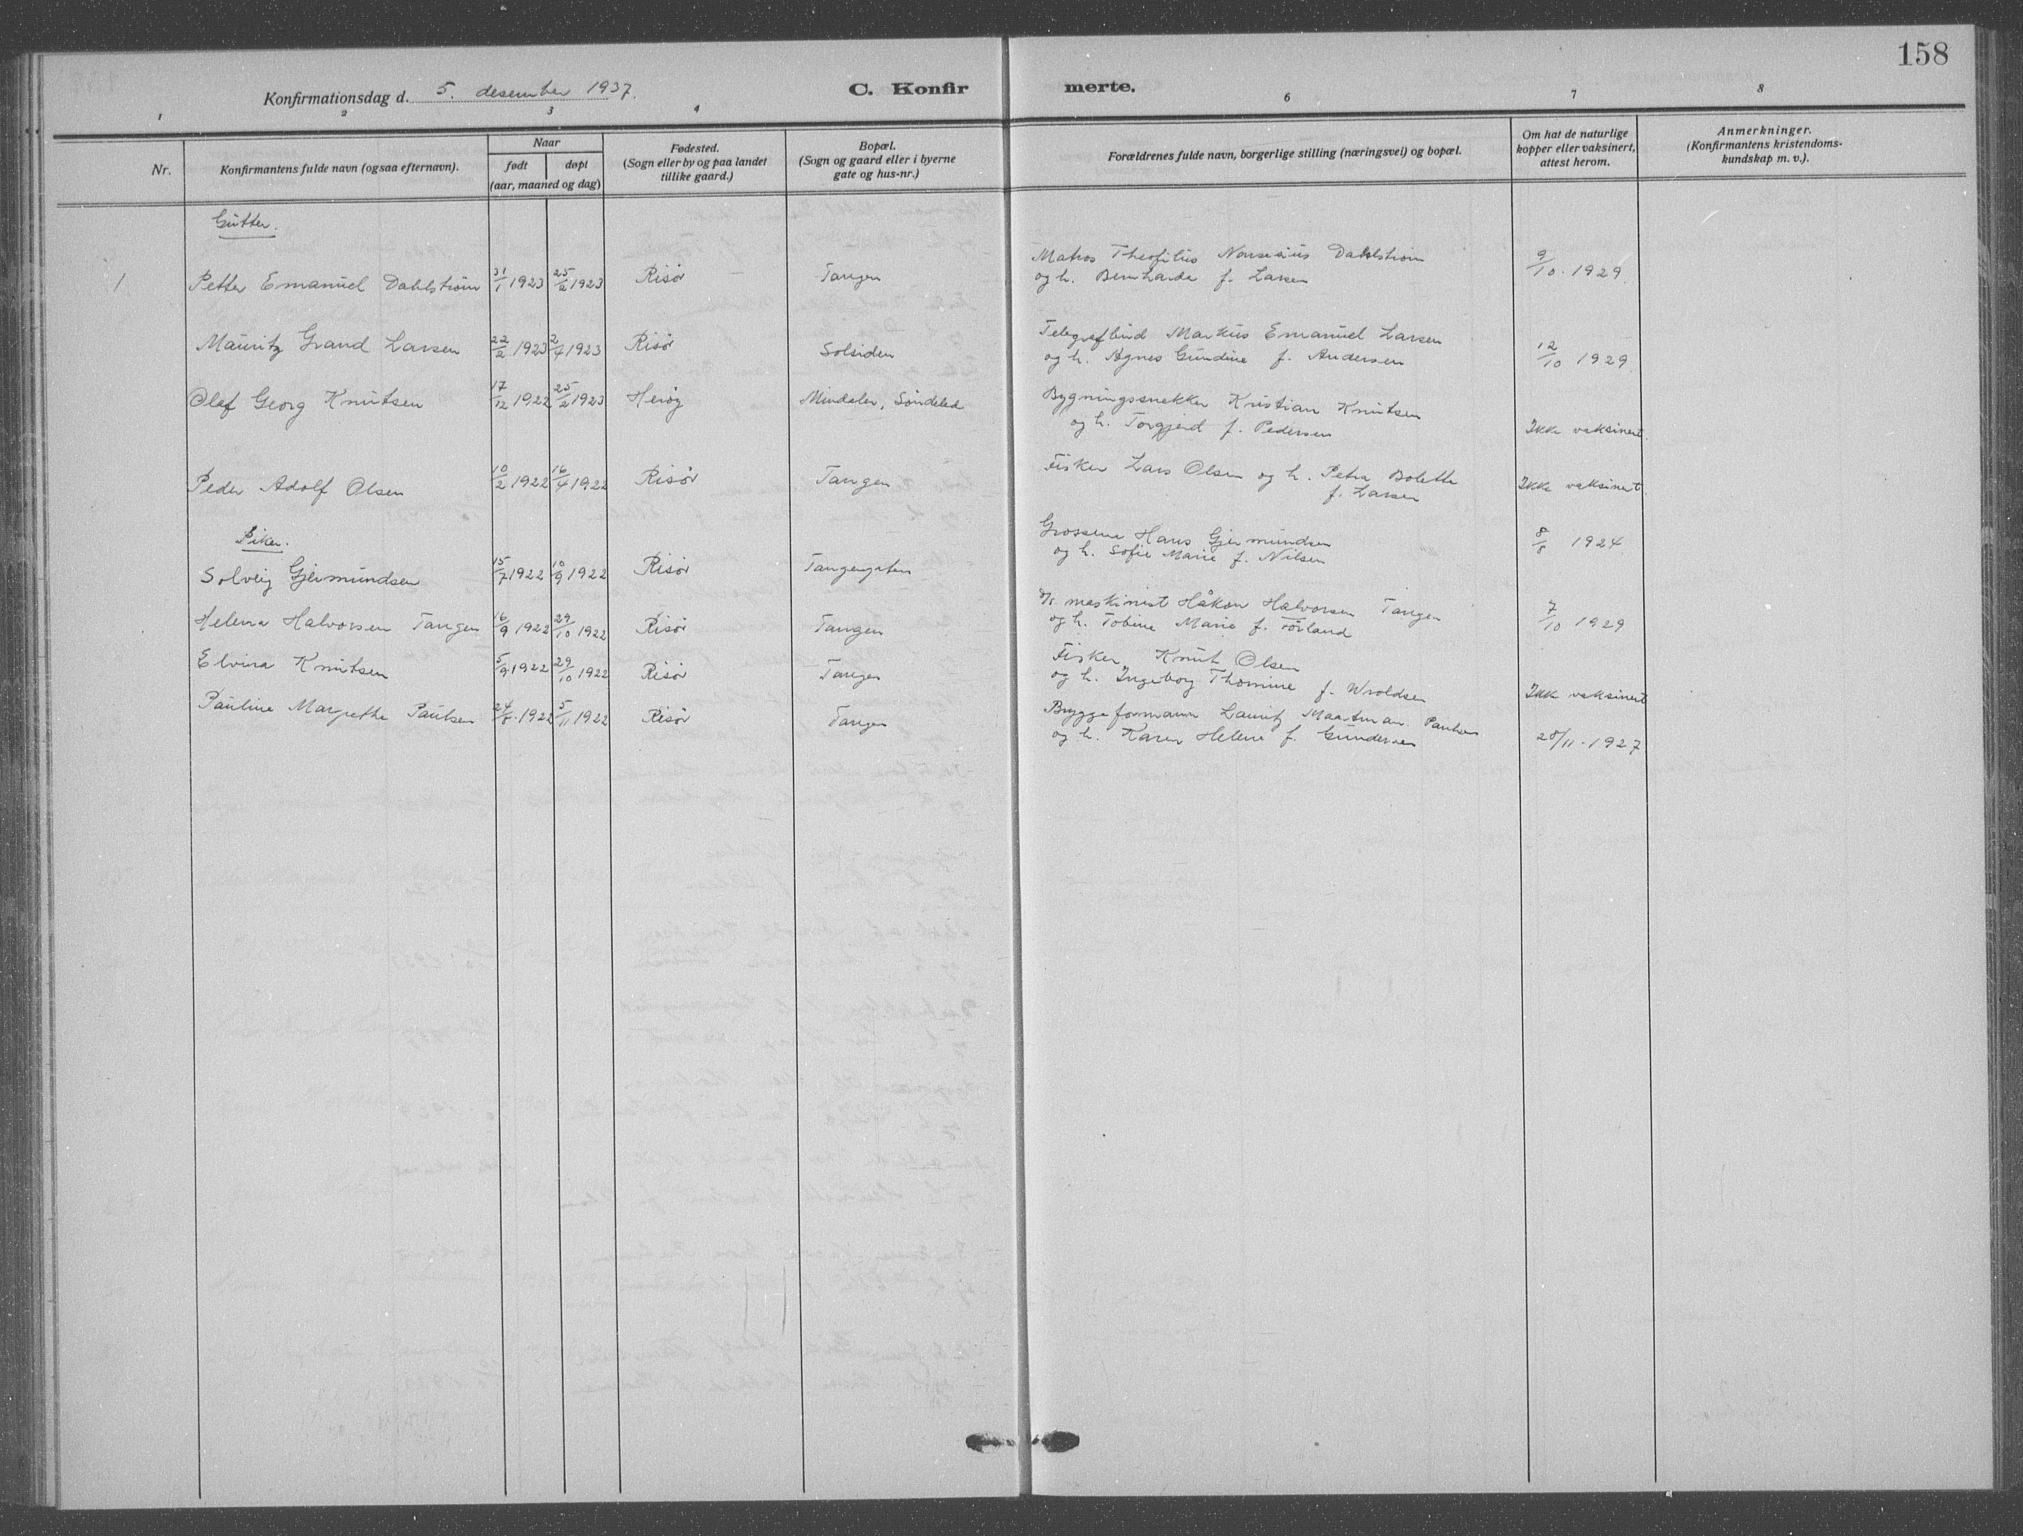 158
Konfirmationsdag d. 5. desember 1937.
C. Konfirmerte.
1 2 3 4 6 7 8
Nr.
Konfirmantens fulde navn (ogsaa efternavn).
Naar
født døpt
(aar, maaned og dag)
Fødested.
(Sogn eller by og paa landet
tillike gaard.)
Bopæl.
(Sogn og gaard eller i byerne
gate og hus-nr.)
Forældrenes fulde navn, borgerlige stilling (næringsvei) og bopæl.
Om hat de naturlige
kopper eller vaksinert,
attest herom.
Anmerkninger.
(Konfirmantens kristendoms-
kundskap m. v.).
Gutter.
1 Petter Emanuel Dahlstrøm 31/1 1923 25/2 1923 Risør Tangen
Matros Theofilus Dahlstrøm 9/10. 1929.
og h. Bernharda f. Larsen
Mauritz Grand Larsen 22/2. 1923 2/4 1923 Risør Solsiden
Telegrafbud Markus Emanuel Larsen
og h. Agnes Gundine f. Andersen 12/10 1929.
Olaf Georg Knutsen 17/12 1922 25/2 1923 Herøy Mindalen, Søndeled
Bygningssnekker Kristian Knutsen
og h. Torgjerd f. Pedersen Ikke vaksinert.
Peder Adolf Olsen 10/2 1922 16/4 1922 Risør Tangen
Fisker Lars Olsen og h. Petra Bolette
f. Larsen Ikke vaksinert.
Piker.
Solveig Gjermundsen 15/7 1922 10/9 1922 Risør Tangengaten
Hans Gjermundsen
og h. Sofie Marie f. Nilsen 8/8 1924
Helena Halvorsen Tangen 16/9 1922 29/10 1922 Risør Tangen
maskinist Håkon Halvorsen Tangen
og h. Tobine Marie f. Førland 7/10 1929
Elvira Knutsen 5/9. 1922 29/10 1922 Risør Tangen
Fisker Knut Olsen
og h. Ingeborg Thomine f. Wroldsen Ikke vaksinert
Pauline Margrethe Paulsen 24/8. 1922 5/11 1922 Risør Tangen
Bryggeformann Lauritz Maatman Paulsen
og h. Karen Helene f. Gundersen 28/11. 1927